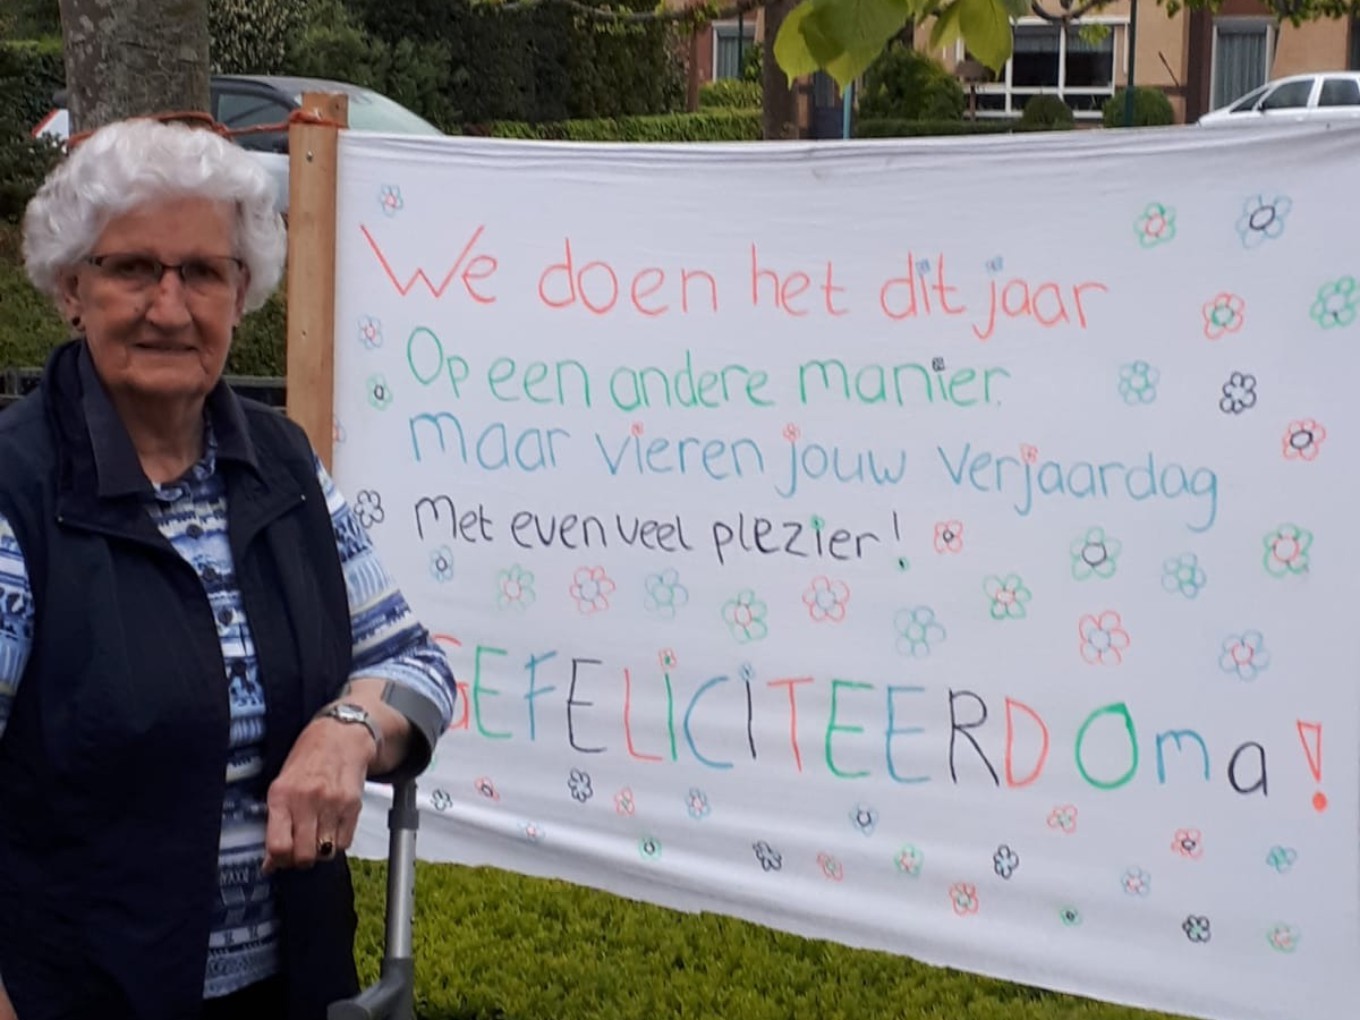 We doen het dit jaar
Op een andere manier.
maar vieren jouw verjaardag
Met evenveel plezier!
GEFELICITEERD Oma!